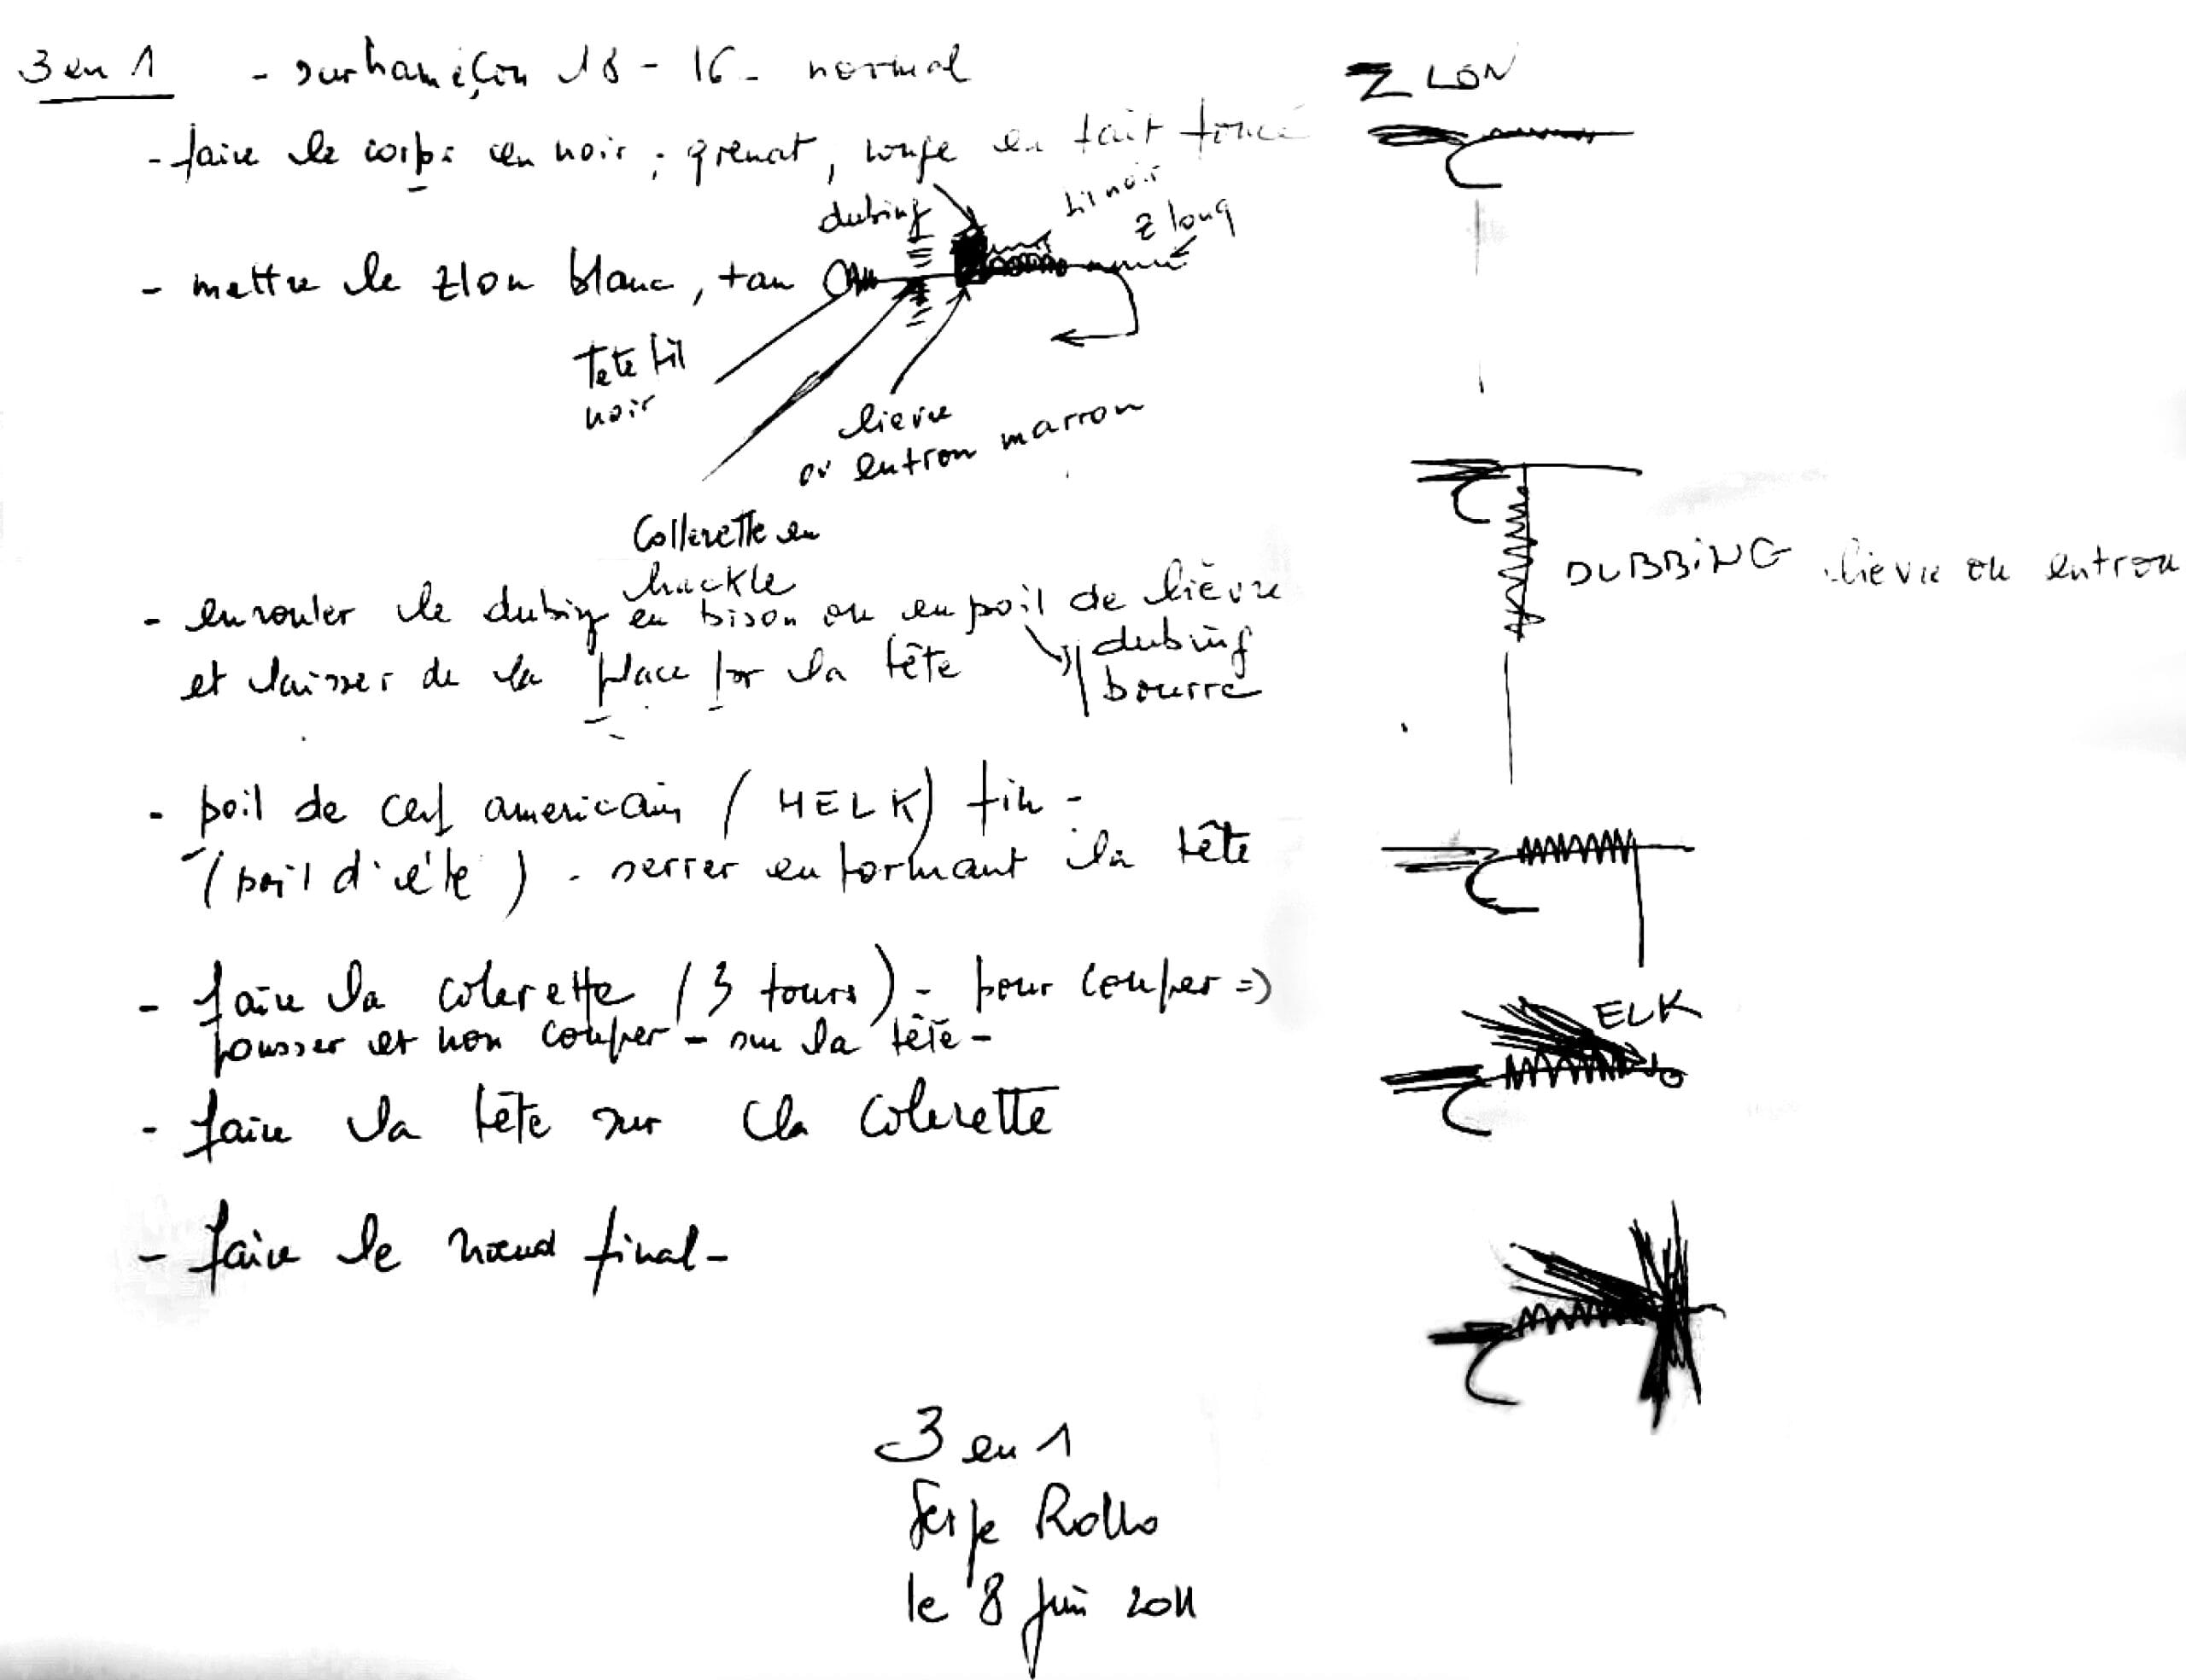 3 en 1 - sur hameçon 18 - 16 - normal
- faire le corps en noir, grenat, rouge en fait foncé
dubing
fil noir
z long
- mettre le zlon blanc, tan
Tete fil
noir
lievre
ou entron marron
Collerette en
hackle
- enrouler le dubing en bison ou en poil de lièvre
et laisser de la place pr la tête
dubing
bourre
- poil de cerf americain (HELK) fin -
(poil d'été) - serrer en formant la tête
- faire la colerette (3 tours) - pour couper =>
pousser et non couper - sur la tête -
- faire la tête sur la colerette
- faire le nœud final -
Z LON
DUBBING lievre ou entron
ELK
3 en 1
Serge Rollo
le 8 juin 2011